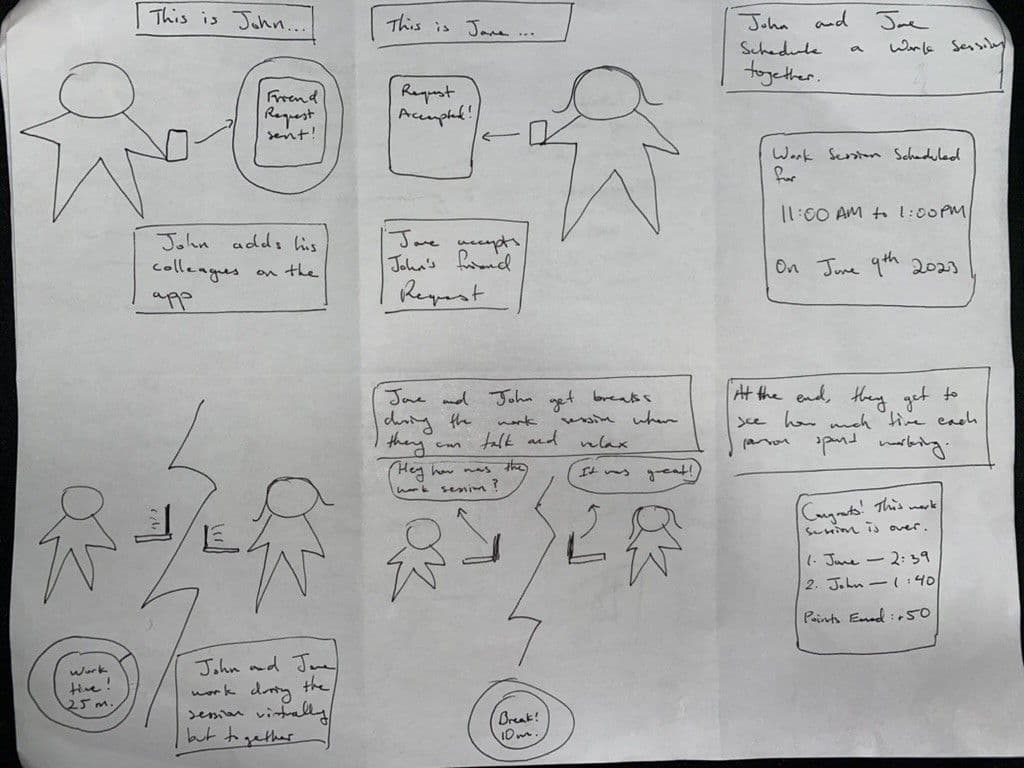 This is John...
Friend
Request
sent!
John adds his
colleagues on the
app
This is Jane...
Request
Accepted!
Jane accepts
John's friend
Request
John and Jane
Schedule a Work Session
together.
Work Session Scheduled
for
11:00 AM to 1:00 PM
On June 9th 2023
Work
time!
25 m.
John and Jane
work during the
session virtually
but together
Jane and John get breaks
during the work session where
they can talk and relax
Hey how was the
work session?
It was great!
Break!
10 m.
At the end, they get to
see how much time each
person spend working.
Congrats! This work
session is over.
1. Jane — 2:39
2. John — 1:40
Points Earned: +50